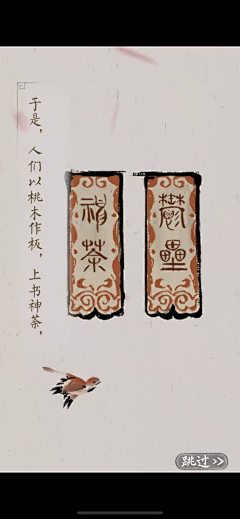 于是，人们以桃木作板，上书神荼，
神荼
鬱壘
跳过